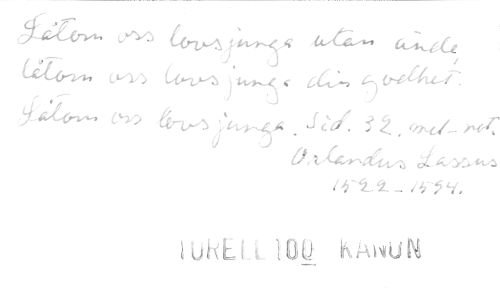 Låtom oss lovsjunga utan ände,
låtom oss lovsjunga din godhet.
Låtom oss lovsjunga. Sid. 32. met-not.
Orlandus Lassus
1522-1594.
TURELL 100 KANON